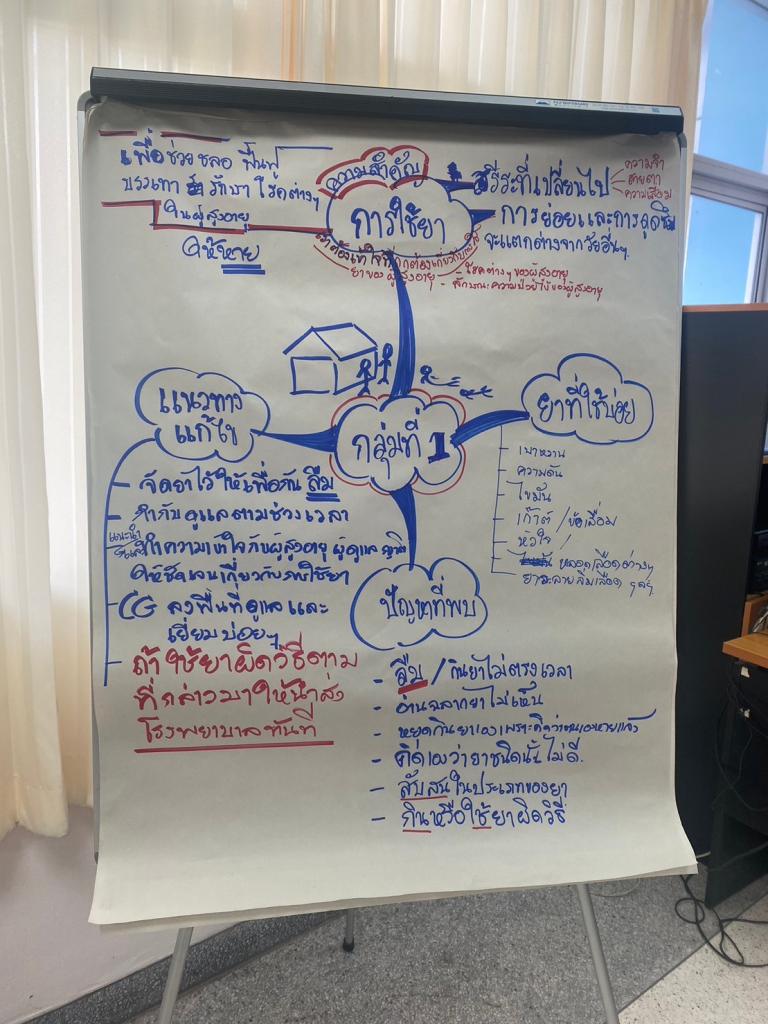 เพื่อช่วยชลอ ฟื้นฟู
บรรเทา รักษา โรคต่างๆ
ในผู้สูงอายุ
ให้หาย
ความสำคัญ
การใช้ยา
สรีระที่เปลี่ยนไป
ความจำ
สายตา
ความเสื่อม
การย่อยและการดูดซึม
จะแตกต่างจากวัยอื่นๆ.
ยาของผู้สูงอายุ
- โรคต่างๆของผู้สูงอายุ
- ลักษณะความป่วยไข้ของผู้สูงอายุ
แนวทาง
แก้ไข
กลุ่มที่ 1
ยาที่ใช้บ่อย
- จัดยาไว้ให้เพื่อกันลืม
- กำกับดูแลตามช่วงเวลา
แนะนำ
ทำความเข้าใจกับผู้สูงอายุ ผู้ดูแล
ให้ชัดเจนเกี่ยวกับการใช้ยา
- CG ลงพื้นที่ดูแลและ
เยี่ยมบ่อยๆ
- ถ้าใช้ยาผิดวิธีตาม
ที่กล่าวมาให้นำส่ง
โรงพยาบาลทันที
- เบาหวาน
- ความดัน
- ไขมัน
- เก๊าต์ / ข้อเสื่อม
- หัวใจ /
- หลอดเลือดต่างๆ
- ยาละลายลิ่มเลือด ฯลฯ
ปัญหาที่พบ
- ลืม / กินยาไม่ตรงเวลา
- อ่านฉลากยาไม่เห็น
- หยุดกินยาเองเพราะคิดว่าตนเองหายแล้ว
- คิดเองว่ายาชนิดนั้นไม่ดี.
- สับสนในประเภทของยา
- กินหรือใช้ยาผิดวิธี